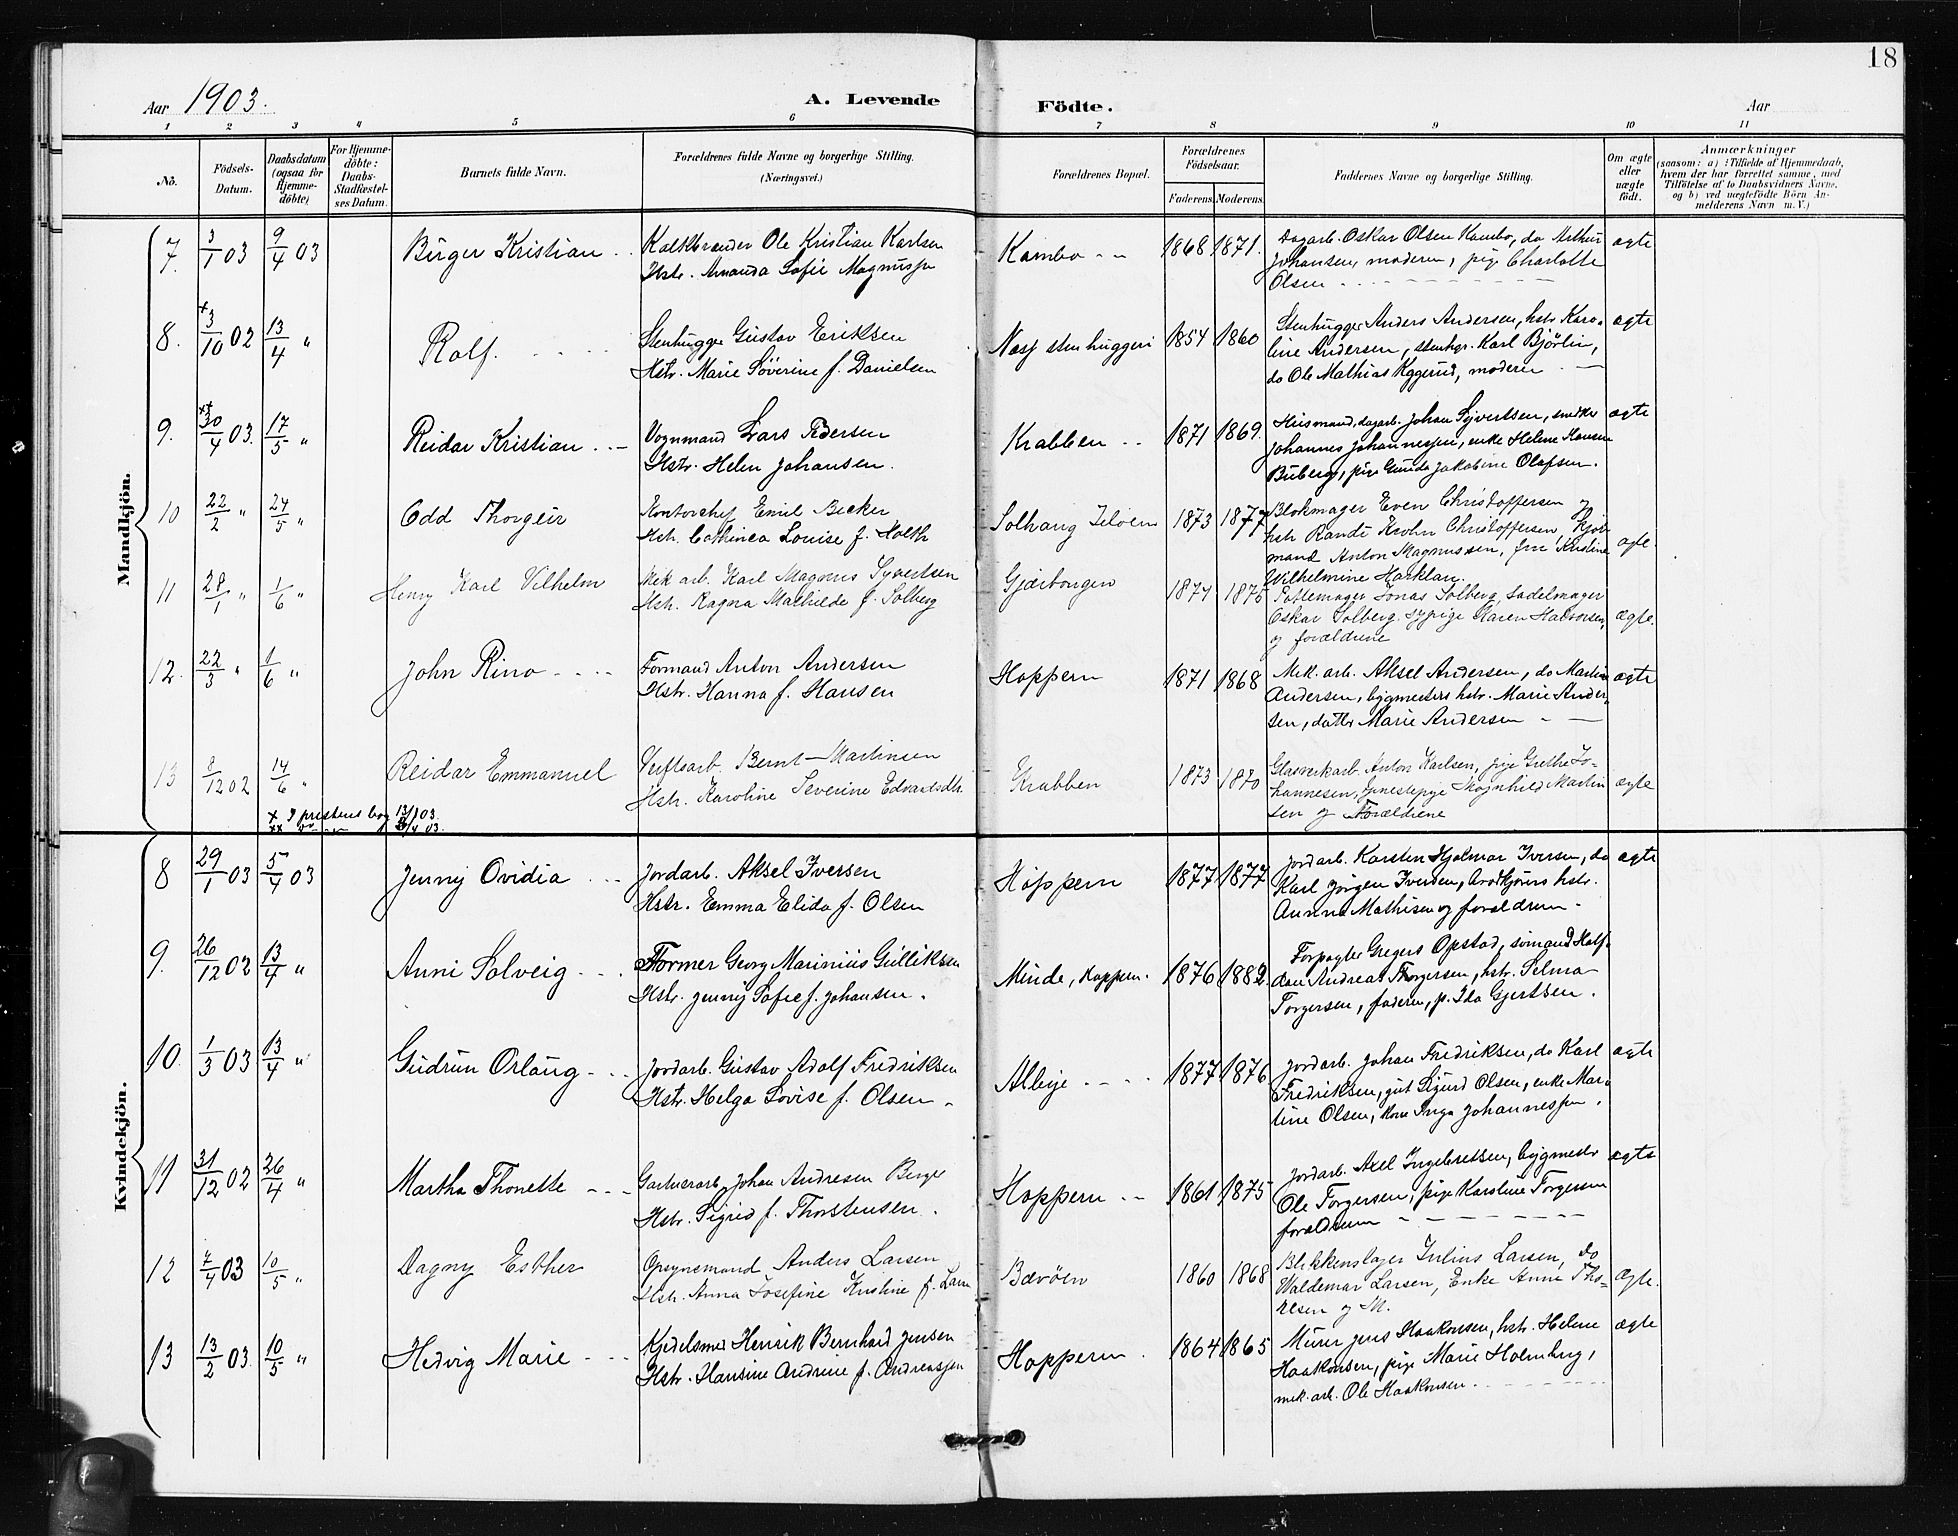 18
Aar 1903.
A. Levende Födte.
Aar
1 2 3 4 5 6 7 8 9 10 11
No.
Födsels-
Datum.
Daabsdatum
(ogsaa for
Hjemme-
döbte)
For Hjemme-
döbte:
Daabs-
Stadfæstel-
ses Datum.
Barnets fulde Navn.
Forældrenes fulde Navne og borgerlige Stilling.
(Næringsvei.)
Forældrenes Bopæl.
Forældrenes
Födselsaar.
Faderens. Moderens.
Faddernes Navne og borgerlige Stilling.
Om ægte
eller
uægte
födt.
Anmærkninger
(saasom: a) :Tilfælde af Hjemmedaab,
hvem der har forrettet samme, med
Tilföielse af to Daabsvidners Navne,
og b) ved uægtefödte Börn An-
melderens Navn m. V.)
Mandkjön.
7. 3/1 03 9/4 03 Birger Kristian
Kalkbrænder Ole Kristian Karlsen
Hstr. Amanda Sofie Magnussen
Kambo 1868 1871.
Dagarb. Oskar Olsen Kambo, do Arthur
Johansen, moderen, pige Charlotte
Olsen
ægte
8. x 3/10 02 13/4 " Rolf.
Stenhugger Gustav Eriksen
Hstr. Marie Söverine f. Danielsen
Næs stenhuggeri 1854 1860
Stenhugger Anders Andersen, hstr. Karo-
line Andersen, stenhgr. Karl Björlin,
do Ole Mathias Eggerud, moderen
ægte
9. xx 30/4 03. 17/5 " Reidar Kristian
Vognmand Lars Pedersen
Hstr. Helen Johansen.
Krabben 1871 1869.
Husmand, dagarb. Johan Syvertsen, snedker
Johannes Johannessen, enke Helene Hansen
Buberg, pige Gunda Jakobine Olafsen.
ægte
10 22/2 " 24/5 " Odd Thorgeir
Kontorchef Emil Becker
Hstr. Cathinca Louise f. Holth
Solhaug Jelöen 1873 1877
Blokmager Even Christoffersen og
hstr Randi Krohn Christoffersen,
mand Anton Magnussen, fru Kristine
Wilhelmine Harklau.
ægte.
11 28/1 " 1/6 " Henry Karl Vilhelm
Mek arb. Karl Magnus Syvertsen
Hstr. Ragna Mathilde f. Solberg
1877 1875
Pottemager Jonas Solberg, Sadelmager
Oskar Solberg, sypige Karen Halvorsen,
og forældrene
ægte.
12. 22/3 " 1/6 " John Rino
Formand Anton Andersen
Hstr. Hanna f. Hansen
Hoppern 1871 1868
Mek. arb. Aksel Andersen, do Martin
Andersen, bygmesters hstr. Marie Ander-
sen, datter Marie Andersen
ægte
13 8/12 02 14/6 " Reidar Emmanuel
Verftsarb. Bernt Martinsen
Hstr. Karoline Severine Edvardsdtr.
Krabben 1873 1870
Glasverkarb. Anton Karlsen, pige Grethe Jo-
hannesen, tjenestepige Magnhild Martin
sen og Forældrene
ægte
x I prestens bog 13/1 03.
xx
Kvindekjön.
8 29/1 03 5/4 03 Jenny Ovidia
Jordarb. Aksel Iversen
Hstr. Emma Elida f. Olsen
Hoppern 1877 1877
Jordarb. Karsten Hjalmar Iversen, do
Karl Jörgen Iversen, hstr.
Anna Mathisen og forældrene.
ægte
9. 26/12 02 13/4 " Anni Solveig
Former Georg Marinius Gulliksen
Hstr. Jenny Sofie f. Johansen.
Minde, Hoppern. 1876 1882.
Forpagter Gregers Opstad, sömand Half-
dan Andreas Torgersen, hstr. Selma
Torgersen, faderen, p. Ida Gjertsen.
10. 1/3 03 13/4 " Gudrun Orlaug
Jordarb. Gustav Adolf Fredriksen
Hstr. Helga Lovise f. Olsen
Alleye 1877 1876
Jordarb. Johan Fredriksen, do Karl
Fredriksen, gut Sigurd Olsen, enke Mar-
tine Olsen, kone Inga Johannessen.
ægte
11 31/12 02 26/4 " Martha Thonette
Gartnerarb. Johan Andresen Berge
Hstr. Sigrid f. Thorstensen.
Hoppern 1861 1875
Jordarb. Axel Ingebretsen, bygmestr
Ole Torgersen, pige Karoline Torgersen
forældrene
ægte
12 7/4 03 10/5 " Dagny Esther
Opsynsmand Anders Larsen
Hstr. Anna Josefine Kristine f. Larsen
Bævöen 1860 1868
Blikkenslager Julius Larsen, do
Waldemar Larsen, Enke Anne Tho-
resen og M.
Ægte.
13 13/2 03. 10/5 " Hedvig Marie
Kjedelsmed Henrik Bernhard Jensen
Hstr. Hansine Andrine f. Andreassen
Hoppern. 1864 1865
Murer Jens Haakonsen, hstr. Helene
Haakonsen, pige Marie Holmberg,
mek. arb. Ole Haakonsen.
ægte